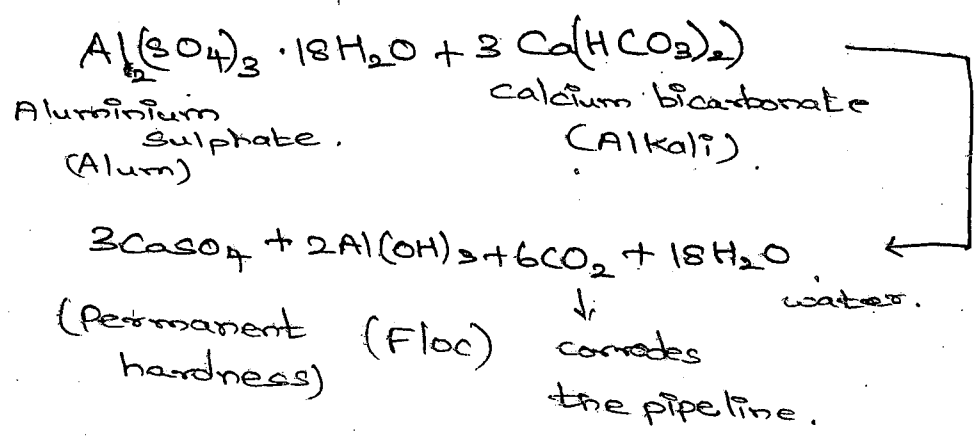 Al₂(SO₄)₃ · 18H₂O + 3 Ca(HCO₃)₂)
Aluminium
sulphate.
(Alum)
calcium bicarbonate
(Alkali).
3CaSO₄ + 2Al(OH)₃ + 6CO₂ + 18H₂O
(Permanent
hardness)
(Floc)
↓
corrodes
the pipeline.
water.